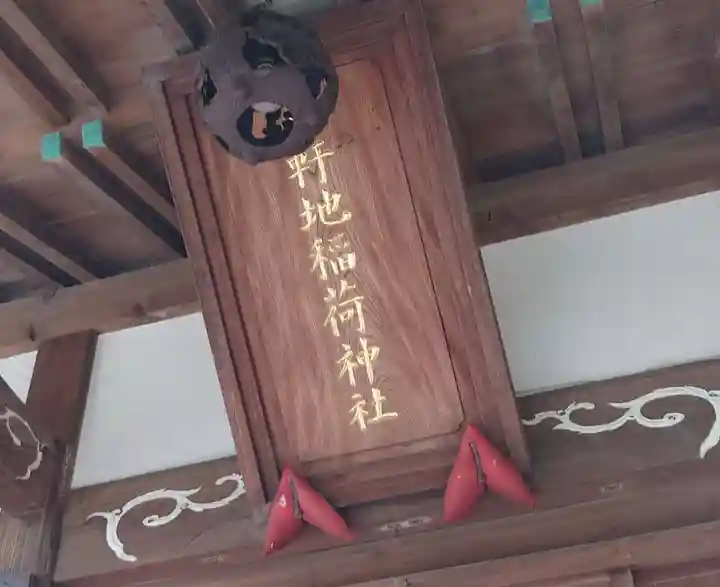 地稲荷神社